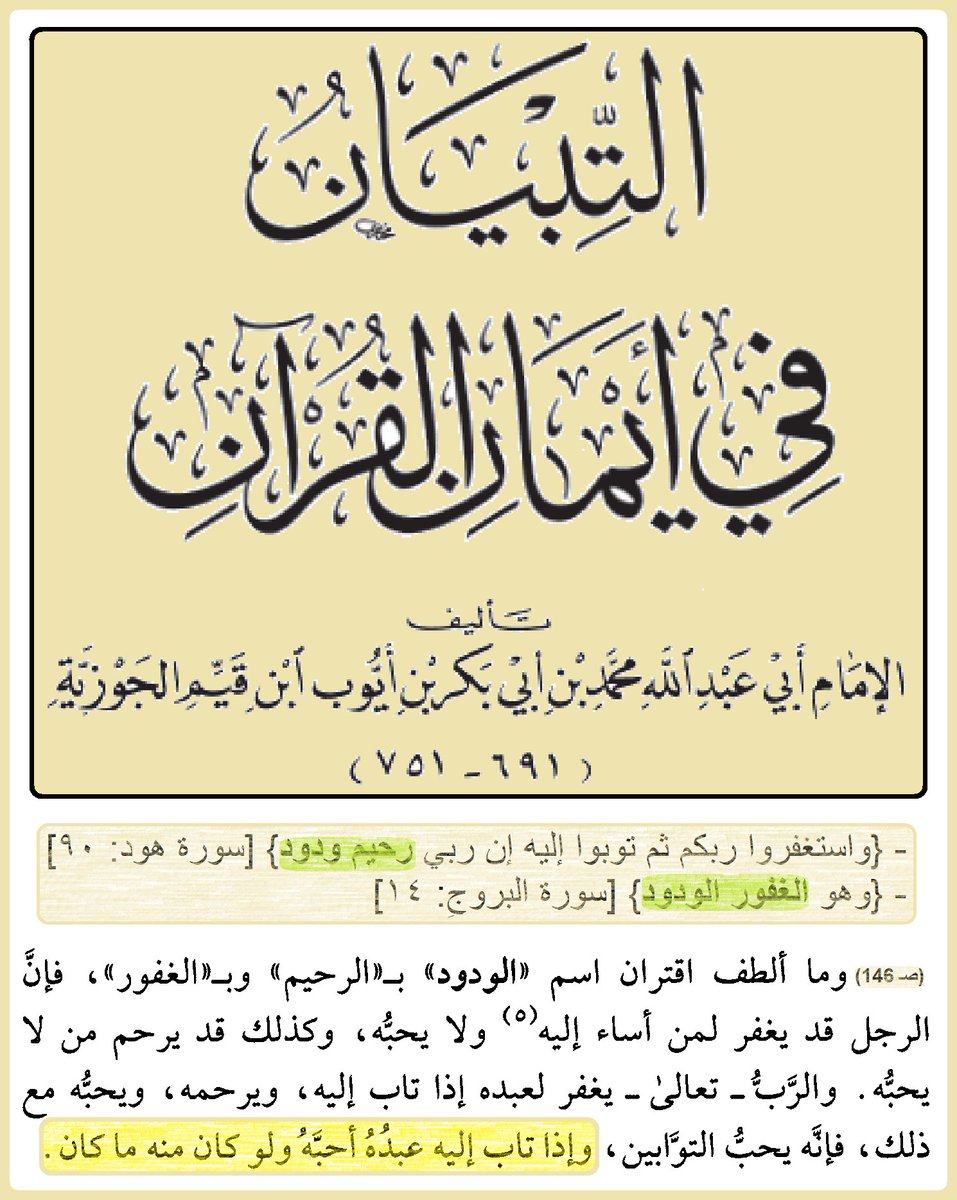 التِّبْيَانُ
فِي أَيْمَانِ الْقُرْآنِ
تأليف
الإمَامِ أَبِي عَبْدِ اللَّهِ مُحَمَّدِ بْنِ أَبِي بَكْرِ بْنِ أَيُّوب ابْنِ قَيِّمِ الجَوْزِيَّةِ
( ٦٩١ - ٧٥١ )
- {واستغفروا ربكم ثم توبوا إليه إن ربي رحيم ودود} [سورة هود: ٩٠]
- {وهو الغفور الودود} [سورة البروج: ١٤]
(صـ 146) وما ألطف اقتران اسم «الودود» بـ«الرحيم» وبـ«الغفور»، فإنَّ
الرجل قد يغفر لمن أساء إليه(٥) ولا يحبُّه، وكذلك قد يرحم من لا
يحبُّه. والرَّبُّ ـ تعالىٰ ـ يغفر لعبده إذا تاب إليه، ويرحمه، ويحبُّه مع
ذلك، فإنَّه يحبُّ التوَّابين، وإذا تاب إليه عبدُهُ أحبَّهُ ولو كان منه ما كان.